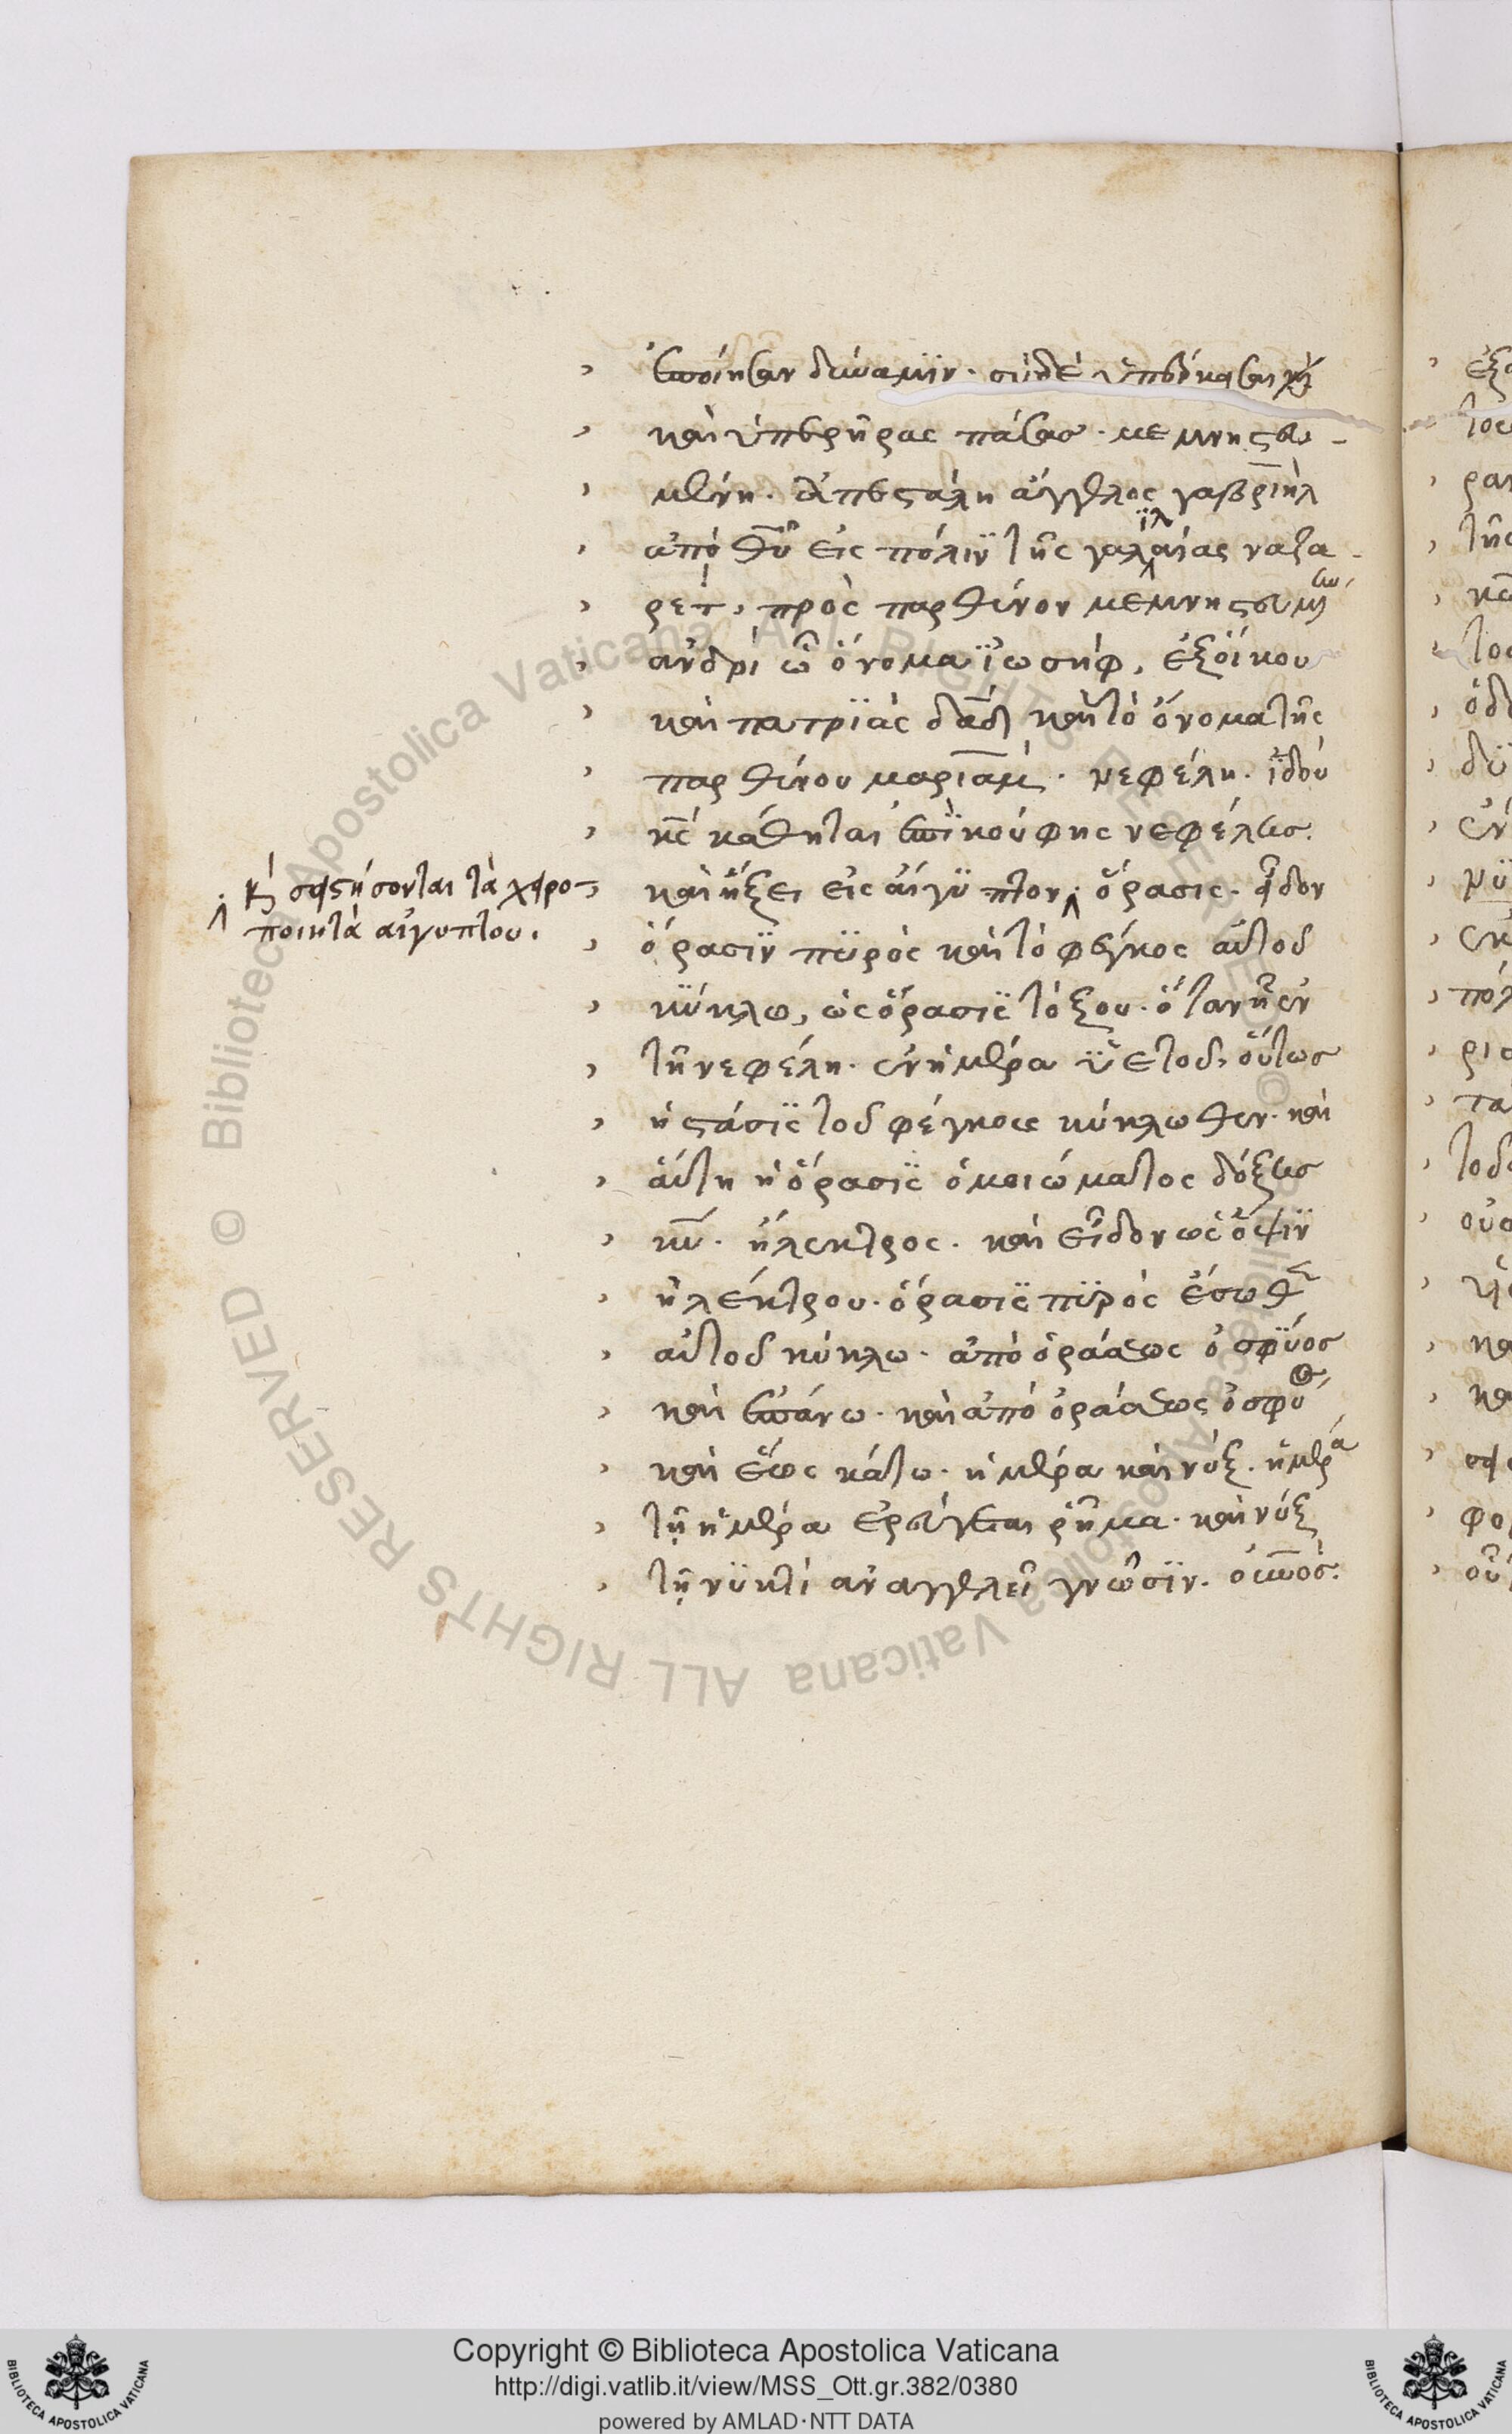 ἐποίησαν δύναμϊν· σὺ δὲ ὑπέρκεισαι
καὶ ὑπερῆρας πάσας· μεμνηστευ-
μένη. ἀπεστάλη ἄγγελος γαβριὴλ
ἀπὸ θῦ εἰς πόλιν τῆς γαλιλαίας ναζα-
ρέτ, πρὸς παρθένον μεμνηστευμένην
ἀνδρὶ ὧ ὄνομα ἰωσὴφ, ἐξ οἴκου
καὶ πατρϊᾶς δᾱδ καὶ τὸ ὄνομα τῆς
παρθένου μαριάμ· νεφέλη. ἰδοὺ
κς κάθηται ἐπὶ κούφης νεφέλης.
καὶ σεισθήσονται τὰ χειρο-
ποίητα αἰγύπτου.
καὶ ἥξει εἰς αἴγϋπτον· ὅρασις· εἶδον
ὅρασϊν πϋρὸς καὶ τὸ φέγγος αὐτοῦ
κύκλω, ὡς ὅρασις τόξου· ὅταν ἦ ἐν
τῆ νεφέλη· ἐν ἡμέρα ὑετοῦ, οὕτως
ἡ στάσις τοῦ φέγγους κύκλωθεν· καὶ
αὕτη ἡ ὅρασις ὁμοιώματος δόξης
κυ. ἤλεκτρος· καὶ εἶδον ὡς ὄψιν
ἠλέκτρου· ὅρασις πϋρὸς ἔσωθεν
αὐτοῦ κύκλω· ἀπὸ ὁράσεως ὀσφύος
καὶ ἐπάνω· καὶ ἀπὸ ὁράσεως ὀσφύος
καὶ ἕως κάτω· ἡμέρα καὶ νύξ· ἡμέρα
τῇ ἡμέρα ἐρεύγεται ῥῆμα· καὶ νὺξ
τῇ νυκτὶ ἀναγγελεῖ γνῶσϊν·
Copyright © Biblioteca Apostolica Vaticana
http://digi.vatlib.it/view/MSS_Ott.gr.382/0380
powered by AMLAD·NTT DATA